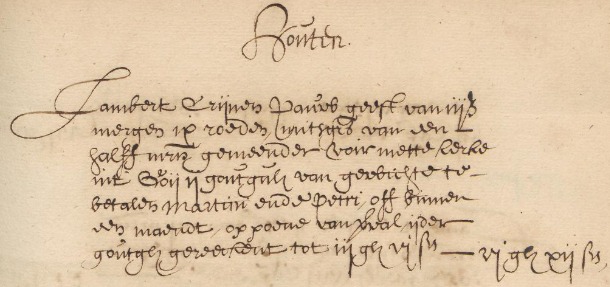 Houten
Lambert Crijnen Pauws geeft van iiij½
mergen ix roeden mitsgrs van een
halff mrg gemeender voir mette kercke
int Goij ij goutgulden van gewichte te
betalen Martini ende Petri off binnen
een maendt, op poene van ijder
goutgl gereeckent tot iij gl vj st — vj gl xij st